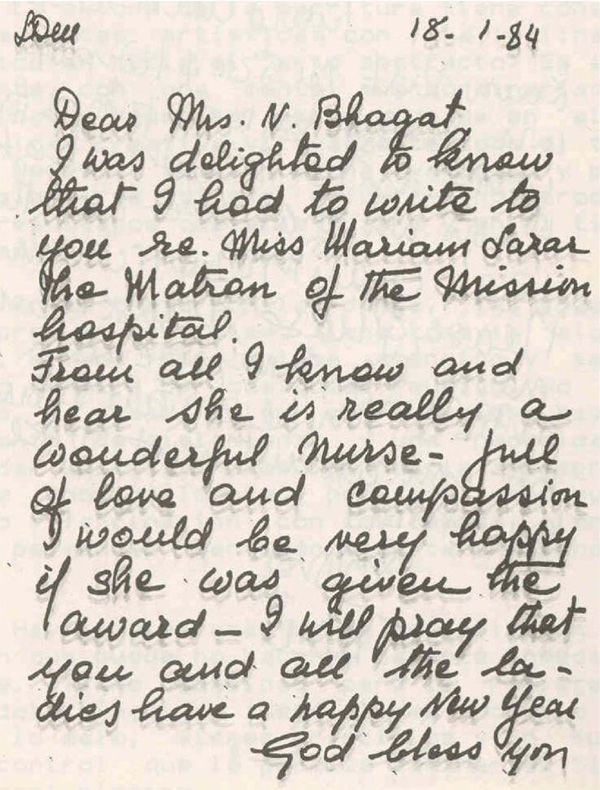 LDM 18-1-84
Dear Mrs. N. Bhagat,
I was delighted to know
that I had to write to
you re. Miss Mariam Lazar
the Matron of the Mission
hospital.
From all I know and
hear she is really a
wonderful Nurse - full
of love and compassion
I would be very happy
if she was given the
award - I will pray that
you and all the la-
dies have a happy New Year
God bless you